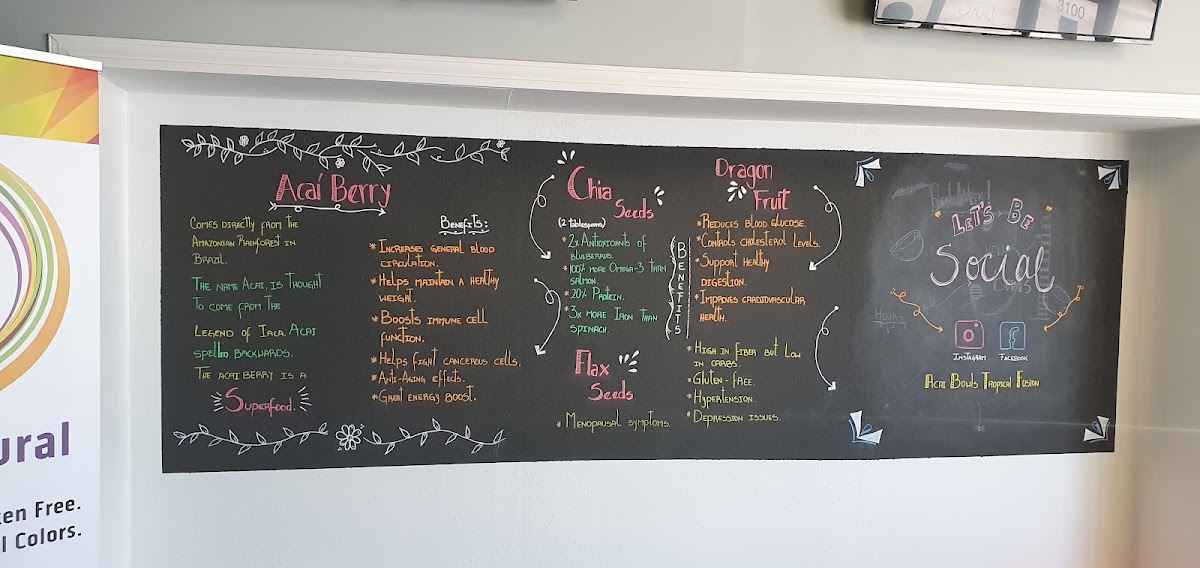 3100
Acaí Berry
Comes directly from the
Amazonian Rainforest in
Brazil.
The name Acai, is thought
to come from the
Legend of Iaca. Acai
spelled backwards.
The acai berry is a
Superfood.
Benefits:
* Increases general blood
circulation.
* Helps maintain a healthy
weight.
* Boosts immune cell
function.
* Helps fight cancerous cells.
* Anti-Aging effects.
* Great energy boost.
Chia
Seeds
(2 tablespoons)
* 2x Antioxidants of
blueberries.
* 100% more Omega-3 than
salmon.
* 20% Protein.
* 3x more Iron than
spinach.
Benefits
Flax
Seeds
* Menopausal symptoms.
* High in fiber but low
in carbs.
* Gluten-free.
* Hypertension.
* Depression issues.
Dragon
Fruit
* Reduces blood glucose.
* Controls cholesterol levels.
* Support healthy
digestion.
* Improves cardiovascular
health.
Let's Be
Social
Instagram
Facebook
Acai Bowls Tropical Fusion
ural
en Free.
l Colors.